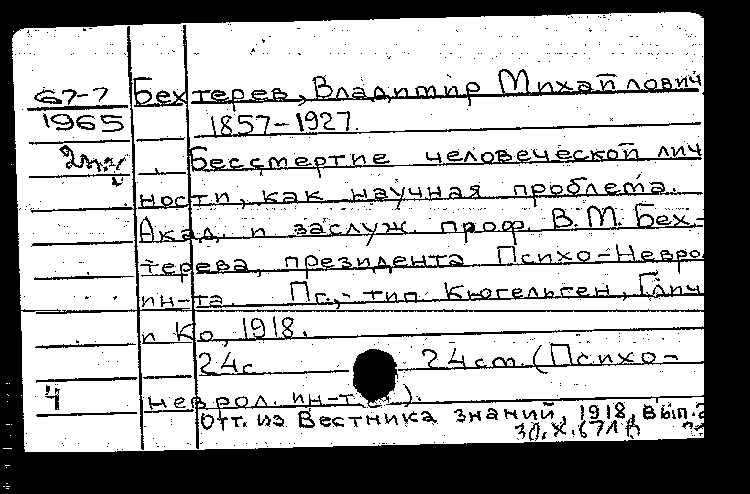 67-7 Бехтерев, Владимир Михайлович
1965 1857-1927.
Бессмертие человеческой лич
ности, как научная проблема.
Акад. и заслуж. проф. В.М. Бех-
терева, президента Психо-Невро
ин-та. Пг., тип. Кюгельген, Глич
и Ко, 1918.
24с 24 cm. (Психо-
4 неврол. ин-т).
Отт. из Вестника знаний, 1918, вып. 2
30.X.67